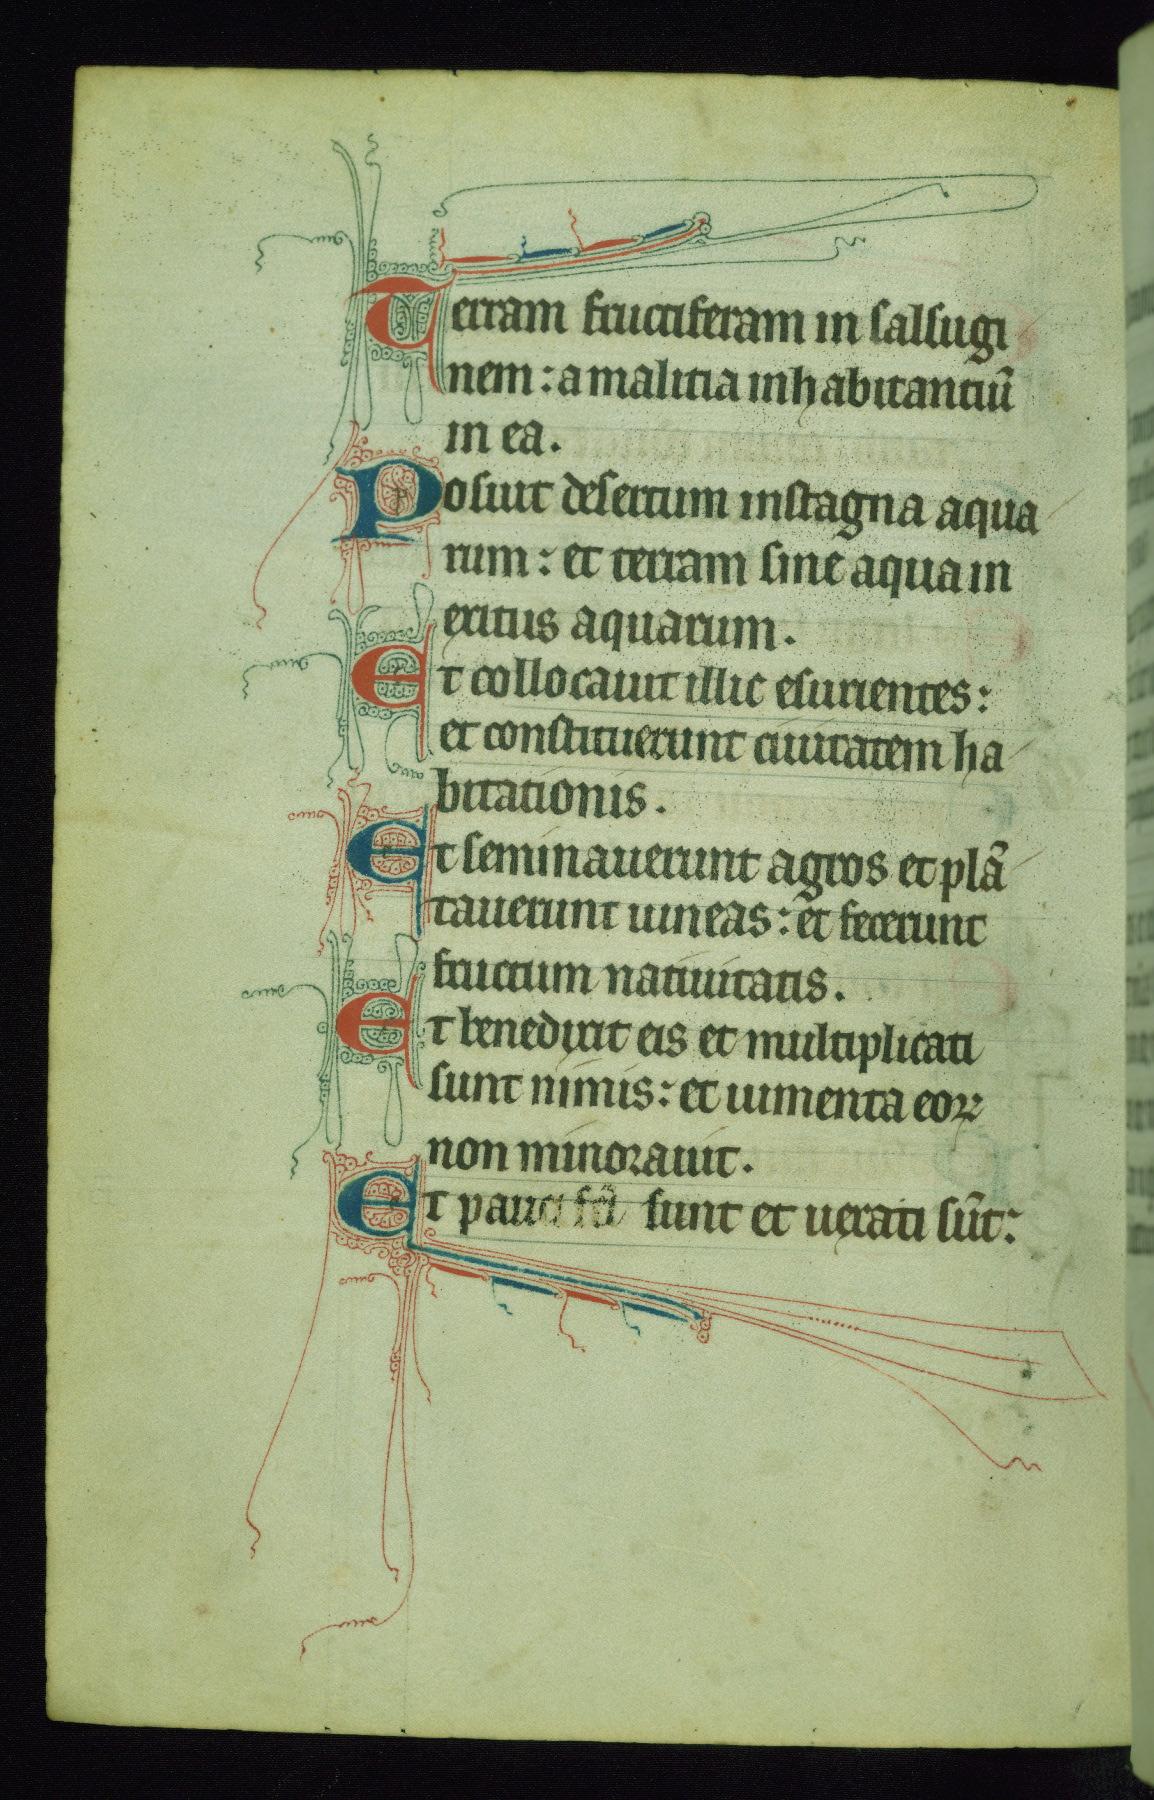 Terram fructiferam in salsugi
nem: a malitia inhabitantiū
in ea.
Posuit desertum in stagna aqua
rum: et terram sine aqua in
exitus aquarum.
Et collocauit illic esurientes:
et constituerunt ciuitatem ha
bitationis.
Et seminauerunt agros et plā
tauerunt uineas: et fecerunt
fructum natiuitatis.
Et benedixit eis et multiplicati
sunt nimis: et iumenta eoꝝ
non minorauit.
Et pauci sunt et uexati sūt: